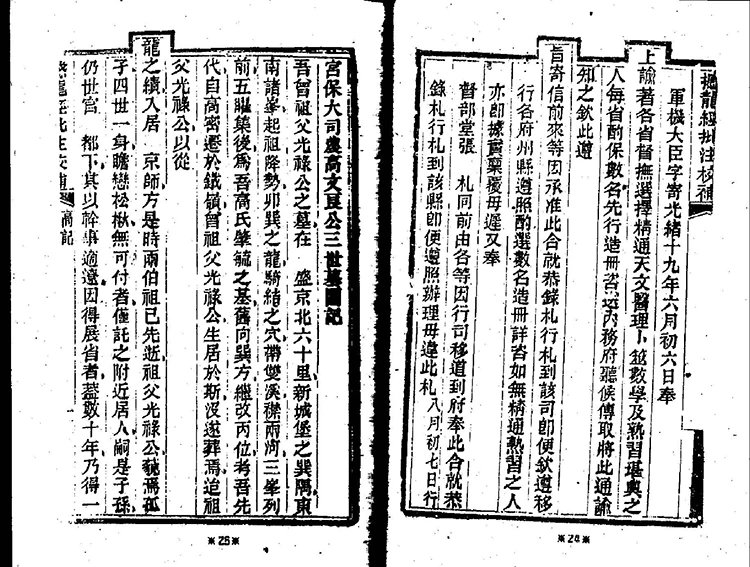 撼龍經批注校補
軍機大臣字寄光緒十九年六月初六日奉
上諭著各省督撫選擇精通天文醫理卜筮數學及熟習堪輿之
人每省酌保數名先行造冊咨送內務府聽候傳取將此通諭
知之欽此遵
旨寄信前來等因承准此合就恭錄札行札到該司即便欽遵移
行各府州縣遵照酌選數名造冊詳咨如無精通熟習之人
亦即據實稟覆毋遲又奉
督部堂張 札同前由各等因行司移道到府奉此合就恭
錄札行札到該縣即便遵照辦理毋違此札八月初七日行
※24※
宮保大司農高文良公三世墓圖記
吾曾祖父光祿公之墓在 盛京北六十里新城堡之巽隅東
南諸峯起祖降勢卯巽之龍騎結之穴帶雙溪襟兩河三峯列
前五嶇集後為吾高氏肇毓之基舊向巽方繼改丙位考吾先
代自高密遷於鐵嶺曾祖父光祿公生居於斯沒遂葬焉迨祖
父光祿公以從
龍之績入居 京師方是時兩伯祖已先逝祖父光祿公藐焉孤
孑四世一身瞻戀松楸無可付者僅託之附近居人嗣是子孫
仍世官 都下其以幹事適遠因得展省者蓋數十年乃得一
撼龍經批注校補 高記
※25※